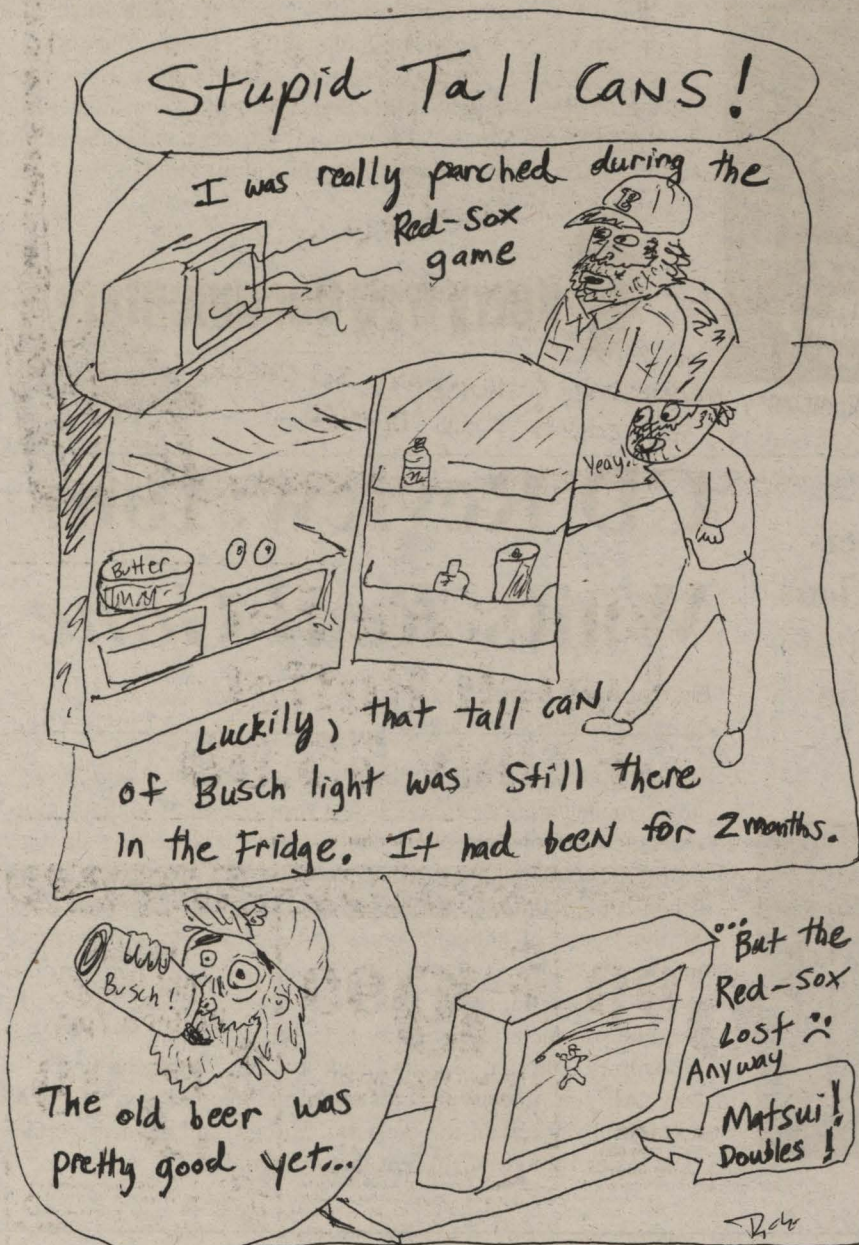 Stupid Tall CANS!
I was really parched during the
Red-Sox
game
B
Yeay!
Butter
Luckily, that tall can
of Busch light was still there
in the Fridge. It had been for 2 months.
Busch!
The old beer was
pretty good yet...
...But the
Red-Sox
Lost
Anyway
Matsui!
Doubles!